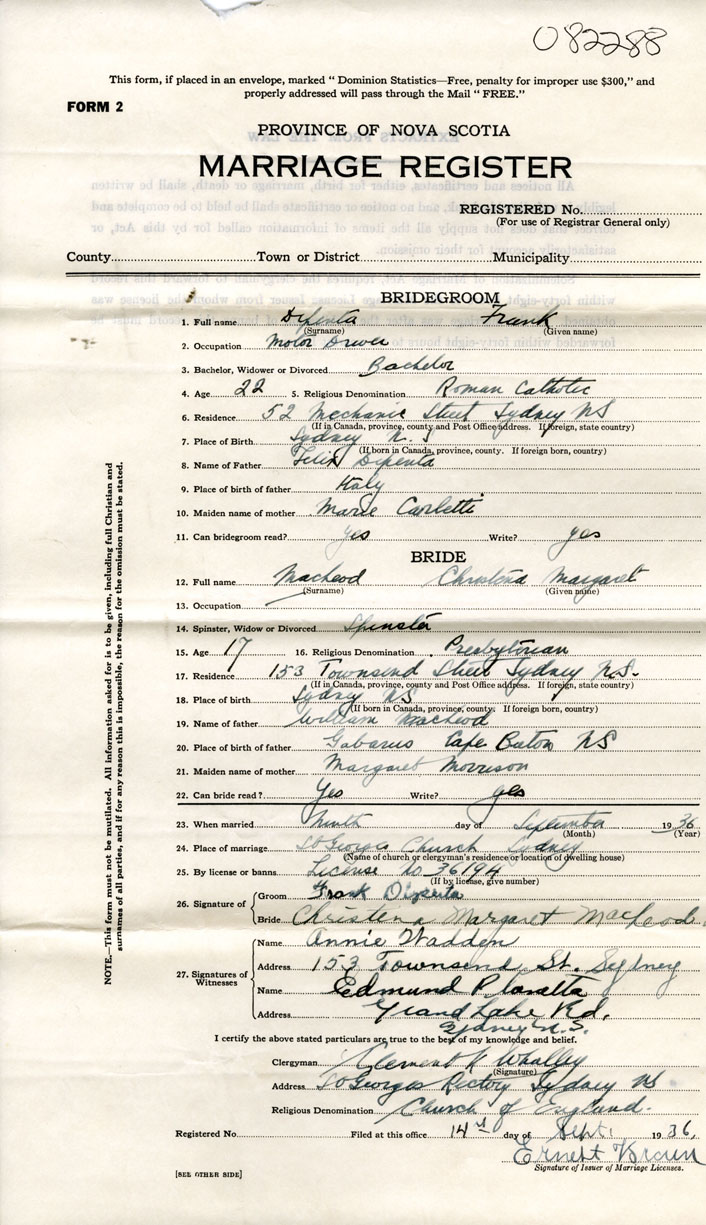 082288
This form, if placed in an envelope, marked " Dominion Statistics—Free, penalty for improper use $300," and
properly addressed will pass through the Mail " FREE."
FORM 2
PROVINCE OF NOVA SCOTIA
MARRIAGE REGISTER
REGISTERED No.
(For use of Registrar General only)
County Town or District Municipality
BRIDEGROOM
1. Full name Dipenta Frank
(Surname) (Given name)
2. Occupation Motor Driver
3. Bachelor, Widower or Divorced Bachelor
4. Age 22 5. Religious Denomination Roman Catholic
6. Residence 52 Mechanic Street Sydney NS
(If in Canada, province, county and Post Office address. If foreign, state country)
7. Place of Birth Sydney N.S
(If born in Canada, province, county. If foreign born, country)
8. Name of Father Felix Dipenta
9. Place of birth of father Italy
10. Maiden name of mother Marie
11. Can bridegroom read? yes Write? yes
BRIDE
12. Full name MacLeod Christena Margaret
(Surname) (Given name)
13. Occupation
14. Spinster, Widow or Divorced Spinster
15. Age 17 16. Religious Denomination Presbyterian
17. Residence 153 Townsend Street Sydney N.S.
(If in Canada, province, county and Post Office address. If foreign, state country)
18. Place of birth Sydney NS
(If born in Canada, province, county. If foreign born, country)
19. Name of father William MacLeod
20. Place of birth of father Gabarus Cape Breton NS
21. Maiden name of mother Margaret Morrison
22. Can bride read? Yes Write? yes
23. When married Ninth day of September 1936
(Month) (Year)
24. Place of marriage St Georges Church Sydney
(Name of church or clergyman's residence or location of dwelling house)
25. By license or banns License No 36194
(If by license, give number)
26. Signature of Groom Frank Dipenta
Bride Christena Margaret MacLeod.
27. Signatures of Witnesses Name Annie Wadden
Address 153 Townsend St. Sydney
Name Edmund P.
Address Grand Lake Rd.
Sydney N.S.
I certify the above stated particulars are true to the best of my knowledge and belief.
Clergyman Clement Whalley
(Signature)
Address St Georges Rectory Sydney NS
Religious Denomination Church of England.
Registered No. Filed at this office 14 day of Sept. 1936,
Ernest Brown
Signature of Issuer of Marriage Licenses.
[SEE OTHER SIDE]
NOTE.—This form must not be mutilated. All information asked for is to be given, including full Christian and
surnames of all parties, and if for any reason this is impossible, the reason for the omission must be stated.